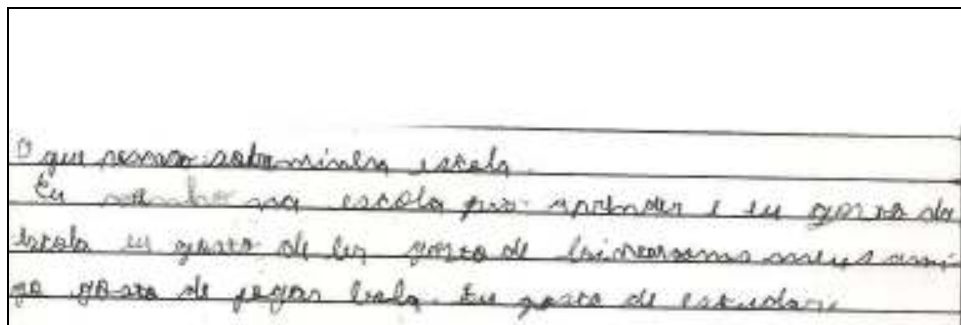 O que penso sobre minha escola.
Eu venho na escola pra aprender e eu gosto da
escola eu gosto de ler gosto de brincar meus ami
go gosto de jogar bola. Eu gosto de estudar.